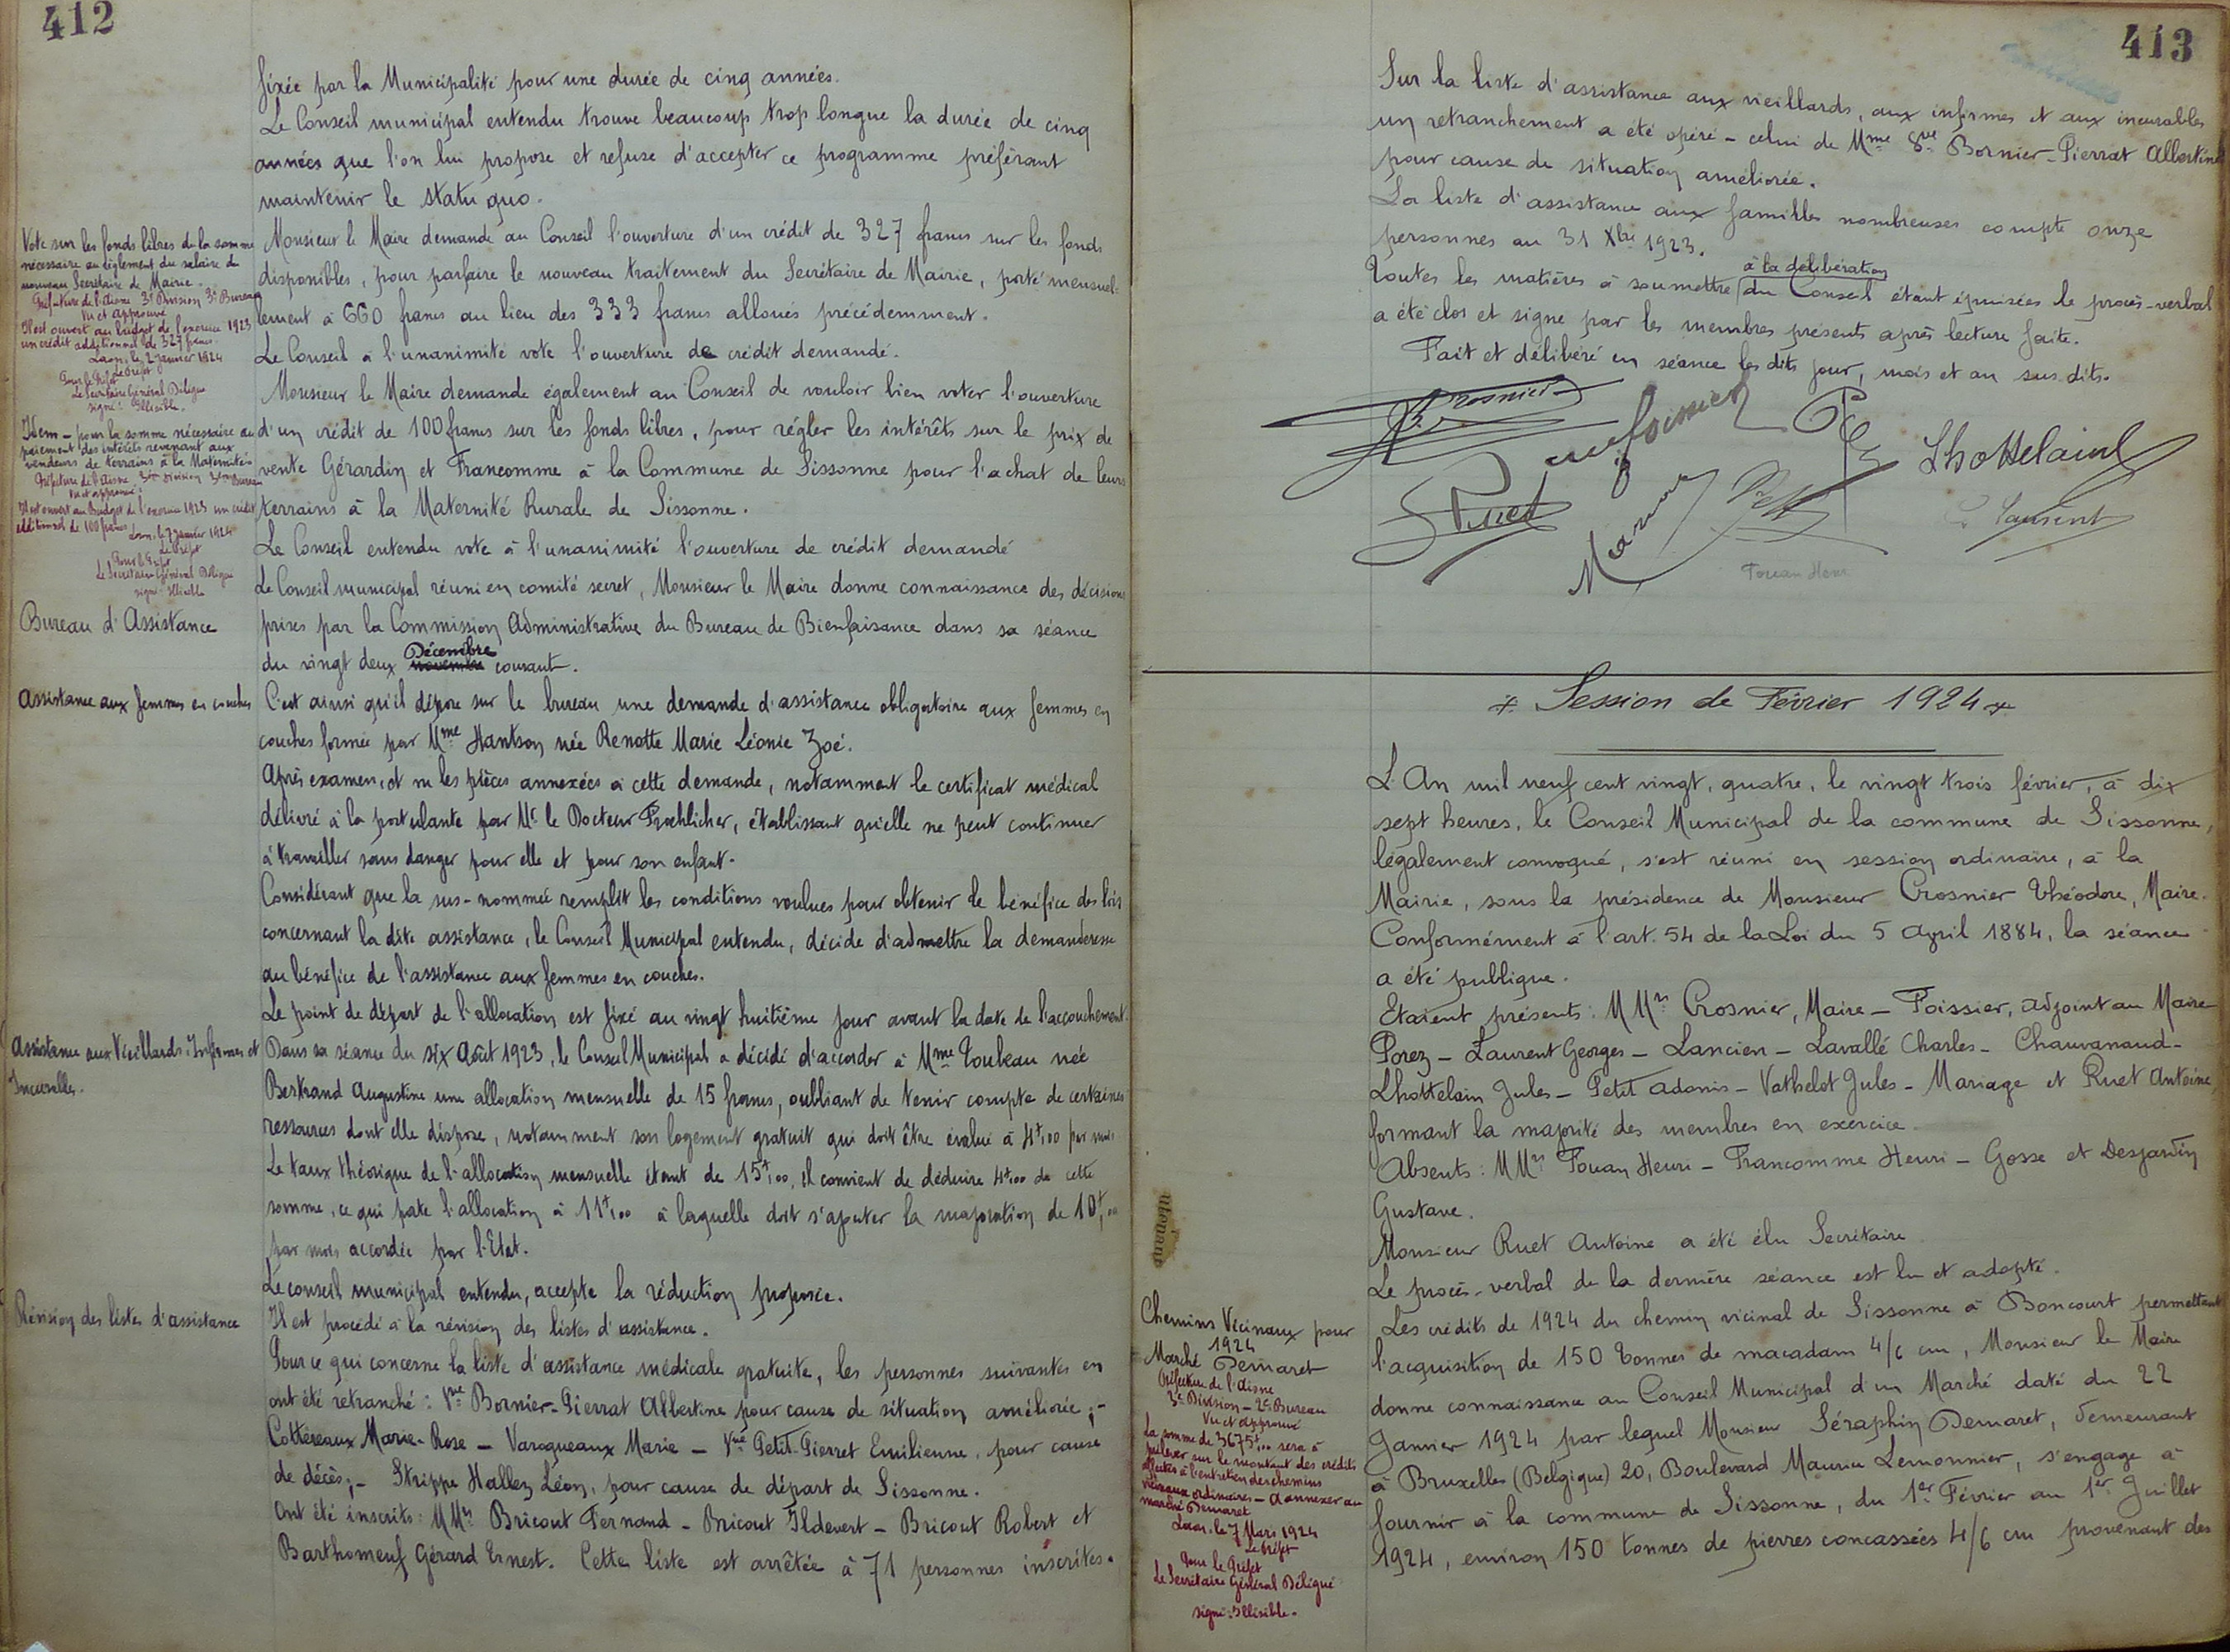 412
fixée par la Municipalité pour une durée de cinq années.
Le Conseil municipal entendu trouve beaucoup trop longue la durée de cinq
années que l'on lui propose et refuse d'accepter ce programme préférant
maintenir le statu quo.
Vote sur les fonds libres de la somme
nécessaire au règlement du salaire du
nouveau Secrétaire de Mairie.
Préfecture de l'Aisne 3e Division 3e Bureau
Vu et approuvé
Il est ouvert au budget de l'exercice 1923
un crédit additionnel de 327 francs.
Laon, le 2 janvier 1924
Le Préfet
Pour le Préfet
Le Secrétaire Général Délégué
signé : Illisible.
Monsieur le Maire demande au Conseil l'ouverture d'un crédit de 327 francs sur les fonds
disponibles, pour parfaire le nouveau traitement du Secrétaire de Mairie, porté mensuel-
lement à 660 francs au lieu des 333 francs alloués précédemment.
Le Conseil à l'unanimité vote l'ouverture de crédit demandé.
Monsieur le Maire demande également au Conseil de vouloir bien voter l'ouverture
Item - pour la somme nécessaire au
paiement des intérêts revenant aux
vendeurs de terrains à la Maternité
Préfecture de l'Aisne 3me Division 3me Bureau
Vu et approuvé :
Il est ouvert au Budget de l'exercice 1923 un crédit
additionnel de 100 francs
Laon, le 7 janvier 1924
Le Préfet
Pour le Préfet
Le Secrétaire Général Délégué
signé : Illisible
d'un crédit de 100 francs sur les fonds libres, pour régler les intérêts sur le prix de
vente Gérardin et Francomme à la Commune de Sissonne pour l'achat de leurs
terrains à la Maternité Rurale de Sissonne.
Le Conseil entendu vote à l'unanimité l'ouverture de crédit demandé
Le Conseil municipal réuni en comité secret, Monsieur le Maire donne connaissance des décisions
Bureau d'Assistance
prises par la Commission Administrative du Bureau de Bienfaisance dans sa séance
Décembre
du vingt deux novembre courant.
Assistance aux femmes en couches
C'est ainsi qu'il dépose sur le bureau une demande d'assistance obligatoire aux femmes en
couches formée par Mme Hantson née Renotte Marie Léonie Zoé.
Après examen, et vu les pièces annexées à cette demande, notamment le certificat médical
délivré à la postulante par Mr le Docteur Froehlicher, établissant qu'elle ne peut continuer
à travailler sans danger pour elle et pour son enfant.
Considérant que la sus-nommée remplit les conditions voulues pour obtenir le bénéfice des lois
concernant la dite assistance, le Conseil Municipal entendu, décide d'admettre la demanderesse
au bénéfice de l'assistance aux femmes en couches.
Le point de départ de l'allocation est fixé au vingt huitième jour avant la date de l'accouchement.
Assistance aux Vieillards, Infirmes et
Incurables.
Dans sa séance du six Août 1923, le Conseil Municipal a décidé d'accorder à Mme Toubeau née
Bertrand Augustine une allocation mensuelle de 15 francs, oubliant de tenir compte de certaines
ressources dont elle dispose, notamment son logement gratuit qui doit être évalué à 4f,00 par mois
Le taux théorique de l'allocation mensuelle étant de 15f,00, il convient de déduire 4f,00 de cette
somme, ce qui porte l'allocation à 11f,00 à laquelle doit s'ajouter la majoration de 10f,00
par mois accordée par l'Etat.
Le conseil municipal entendu, accepte la réduction proposée.
Révision des listes d'assistance
Il est procédé à la révision des listes d'assistance.
Pour ce qui concerne la liste d'assistance médicale gratuite, les personnes suivantes en
ont été retranché : Vve Bornier-Pierrat Albertine pour cause de situation améliorée ;-
Cottereaux Marie-Rose - Varoqueaux Marie - Vve Petit-Pierret Emilienne, pour cause
de décès ;- Strippe Hallez Léon, pour cause de départ de Sissonne.
Ont été inscrits : MMrs Bricout Fernand - Bricout Ildevert - Bricout Robert et
Barthomeuf Gérard Ernest. Cette liste est arrêtée à 71 personnes inscrites.
413
Sur la liste d'assistance aux vieillards, aux infirmes et aux incurables
un retranchement a été opéré - celui de Mme Vve Bornier-Pierrat Albertine
pour cause de situation améliorée.
La liste d'assistance aux familles nombreuses compte onze
personnes au 31 Xbre 1923.
à la délibération
Toutes les matières à soumettre du Conseil étant épuisées le procès-verbal
a été clos et signé par les membres présents après lecture faite.
Fait et délibéré en séance les dits jour, mois et an sus-dits.
Crosnier
Lhottelain
Ruet
Petit
Laurent
Fouan Henri
Session de Février 1924
L'An mil neuf cent vingt, quatre, le vingt trois février, à dix
sept heures, le Conseil Municipal de la commune de Sissonne,
légalement convoqué, s'est réuni en session ordinaire, à la
Mairie, sous la présidence de Monsieur Crosnier Théodore, Maire.
Conformément à l'art. 54 de la Loi du 5 Avril 1884, la séance
a été publique.
Etaient présents : MMrs Crosnier, Maire - Foissier, adjoint au Maire
Porez - Laurent Georges - Lancien - Lavallé Charles - Chauvanaud -
Lhottelain Jules - Petit Adonis - Vathelot Jules - Mariage et Ruet Antoine,
formant la majorité des membres en exercice.
Absents : MMrs Fouan Henri - Francomme Henri - Gosse et Desjardin
Gustave.
Monsieur Ruet Antoine a été élu Secrétaire
Le procès-verbal de la dernière séance est lu et adopté.
Chemins Vicinaux pour
1924
Marché Demaret
Préfecture de l'Aisne
3e Division - 2e Bureau
Vu et approuvé
La somme de 3675f,00 sera à
prélever sur le montant des crédits
affectés à l'entretien des chemins
vicinaux ordinaires - à annexer au
marché Demaret
Laon, le 7 Mars 1924
Le Préfet
Pour le Préfet
Le Secrétaire Général Délégué
signé : Illisible.
Les crédits de 1924 du chemin vicinal de Sissonne à Boncourt permettant
l'acquisition de 150 tonnes de macadam 4/6 cm, Monsieur le Maire
donne connaissance au Conseil Municipal d'un Marché daté du 22
Janvier 1924 par lequel Monsieur Séraphin Demaret, demeurant
à Bruxelles (Belgique) 20, Boulevard Maurice Lemonnier, s'engage à
fournir à la commune de Sissonne, du 1er Février au 1er Juillet
1924, environ 150 tonnes de pierres concassées 4/6 cm provenant des